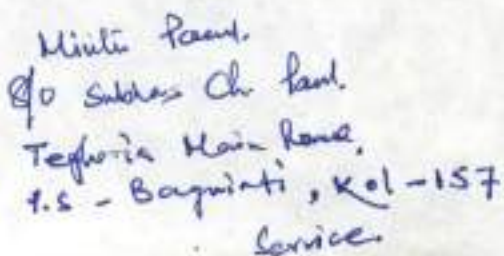 Mintu Paul.
S/o Subhas Ch. Paul.
Teghoria Main Road,
P.S - Baguiati, Kol-157
Service.